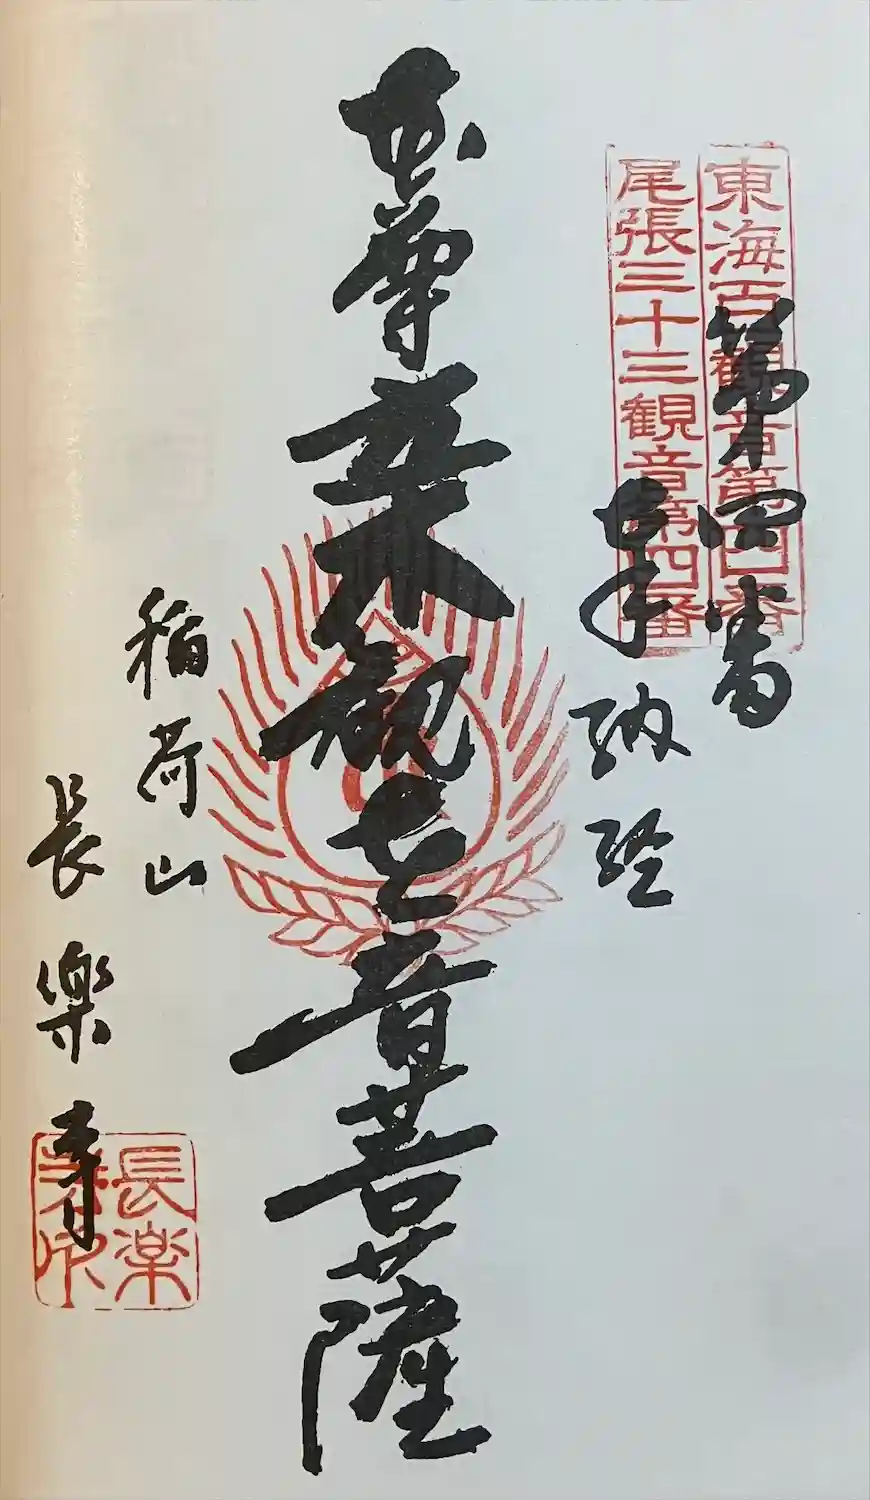 東海百観音第四番
尾張三十三観音第四番
第四番
奉納経
本尊 観世音菩薩
稲荷山
長樂寺
長楽寺印